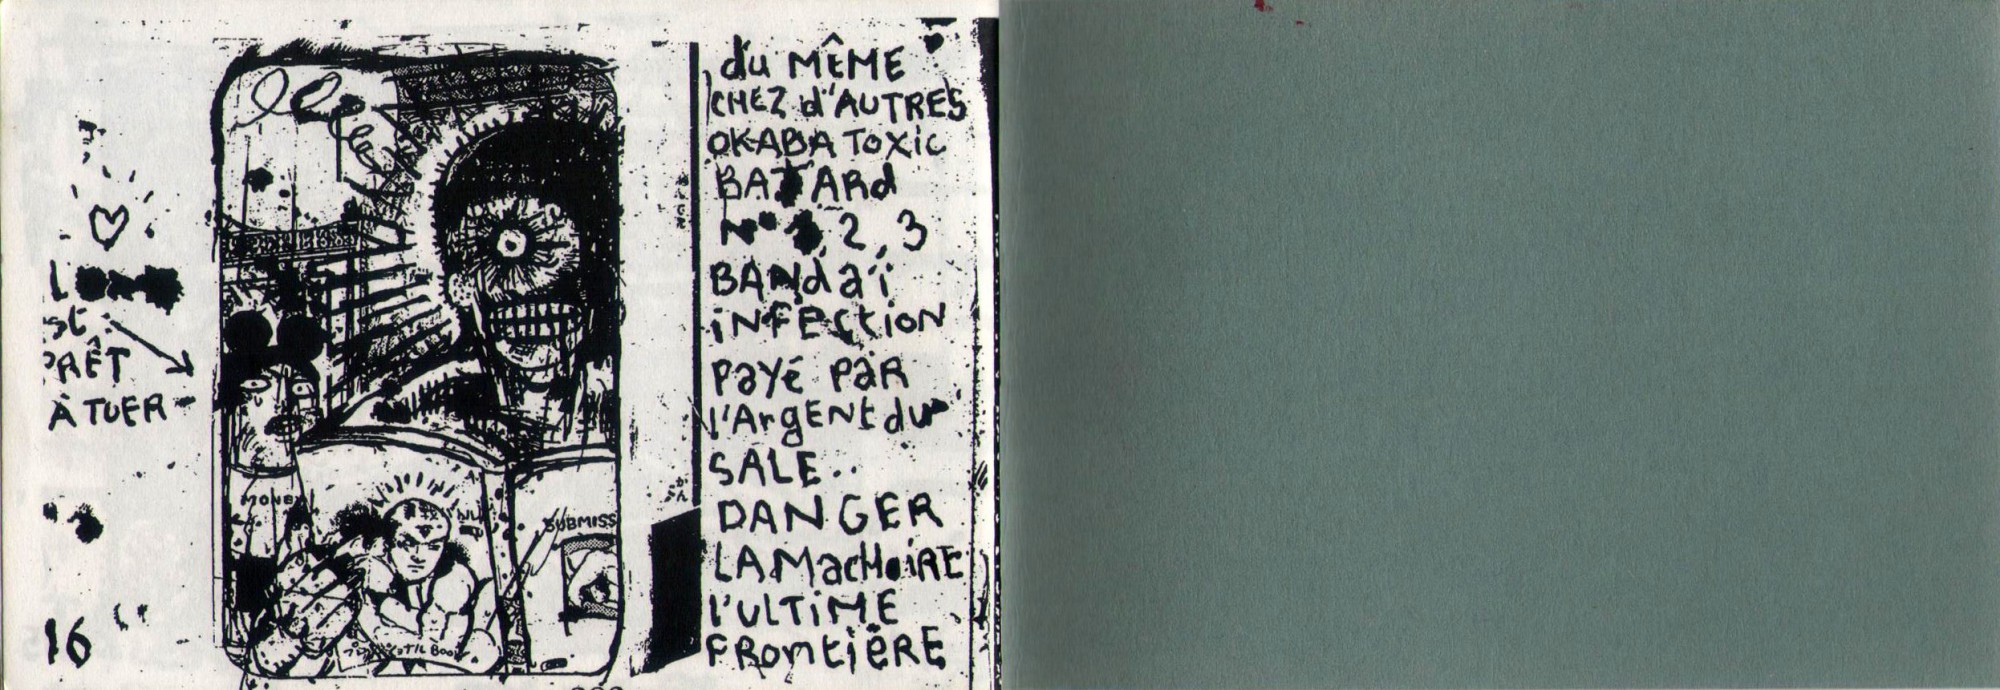 st
PRÊT
À TUER
16
MONEY
SUBMISS
du MÊME
CHEZ d'AUTRES
OKABA TOXIC
BATARd
N° 2, 3
BANdaï
iNFECtioN
PAYÉ PAR
l'ArgENt du
SALE..
DANGER
LA MacHoiRE
l'ULTiME
FRontiÈRE